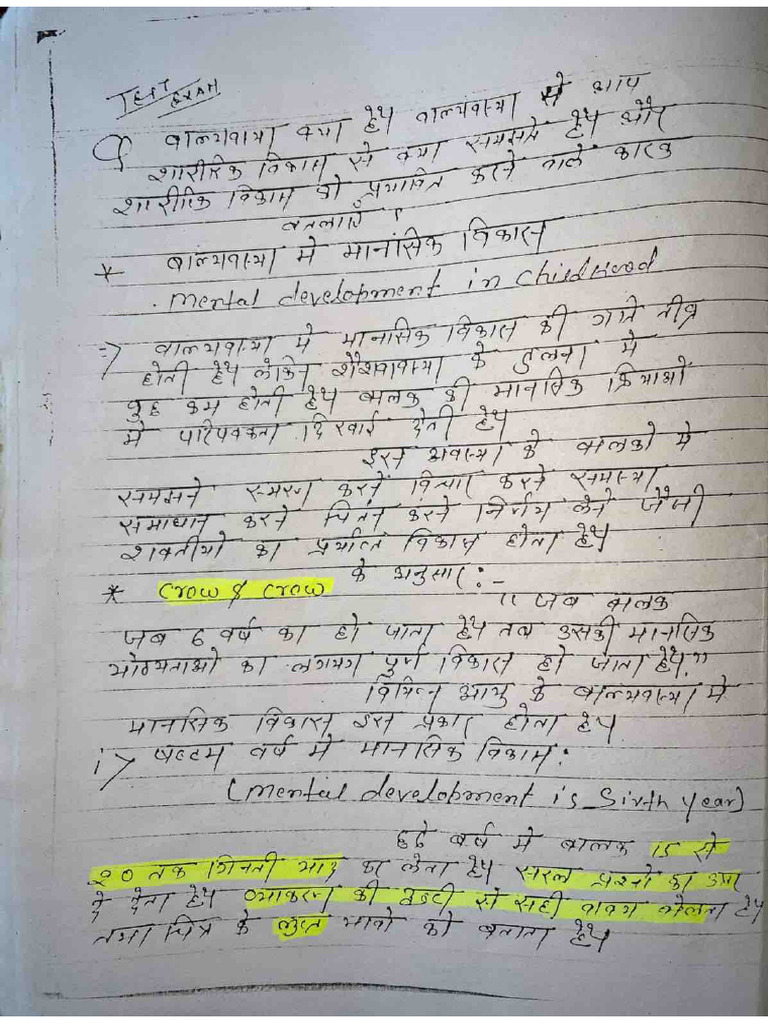 TEST
EXAM
Q बाल्यवास्था क्या है॥ बाल्यवास्था से आप
शारीरिक विकास से क्या समझते है॥ और
शारीरिक विकास को प्रभावित करने वाले कारक
बतलाएँ।
* बाल्यवास्था मे मानसिक विकास
. mental development in Childhood
=> बाल्यवास्था मे मानसिक विकास की गति तीव्र
होती है॥ लेकिन शैशवावस्था के तुलना मे
यह कम होती है॥ बालक की मानसिक क्रियाओं
मे परिपक्वता दिखाई देती है॥
इस अवस्था के बालको मे
समझने स्मरण करने विचार करने समस्या
समाधान करने चिंतन करने निर्णय लेने जैसी
शक्तीयो का प्रर्याप्त विकास होता है॥
* Crow & Crow के अनुसार:-
"जब बालक
जब 6 वर्ष का हो जाता है॥ तब उसकी मानसिक
योग्यताओ का लगभग पुर्ण विकास हो जाता है॥"
विभिन्न आयु के बाल्यवास्था मे
मानसिक विकास इस प्रकार होता है॥
i> षष्टम वर्ष मे मानसिक विकास:
(mental development is Sixth year)
छठे वर्ष मे बालक 15 से
20 तक गिनती याद कर लेता है॥ सरल प्रश्नो का उत्तर
दे देता है॥ व्याकरण की दृष्टी से सही वाक्य बोलता है॥
तथा चित्र के लुप्त भागो को बताता है॥